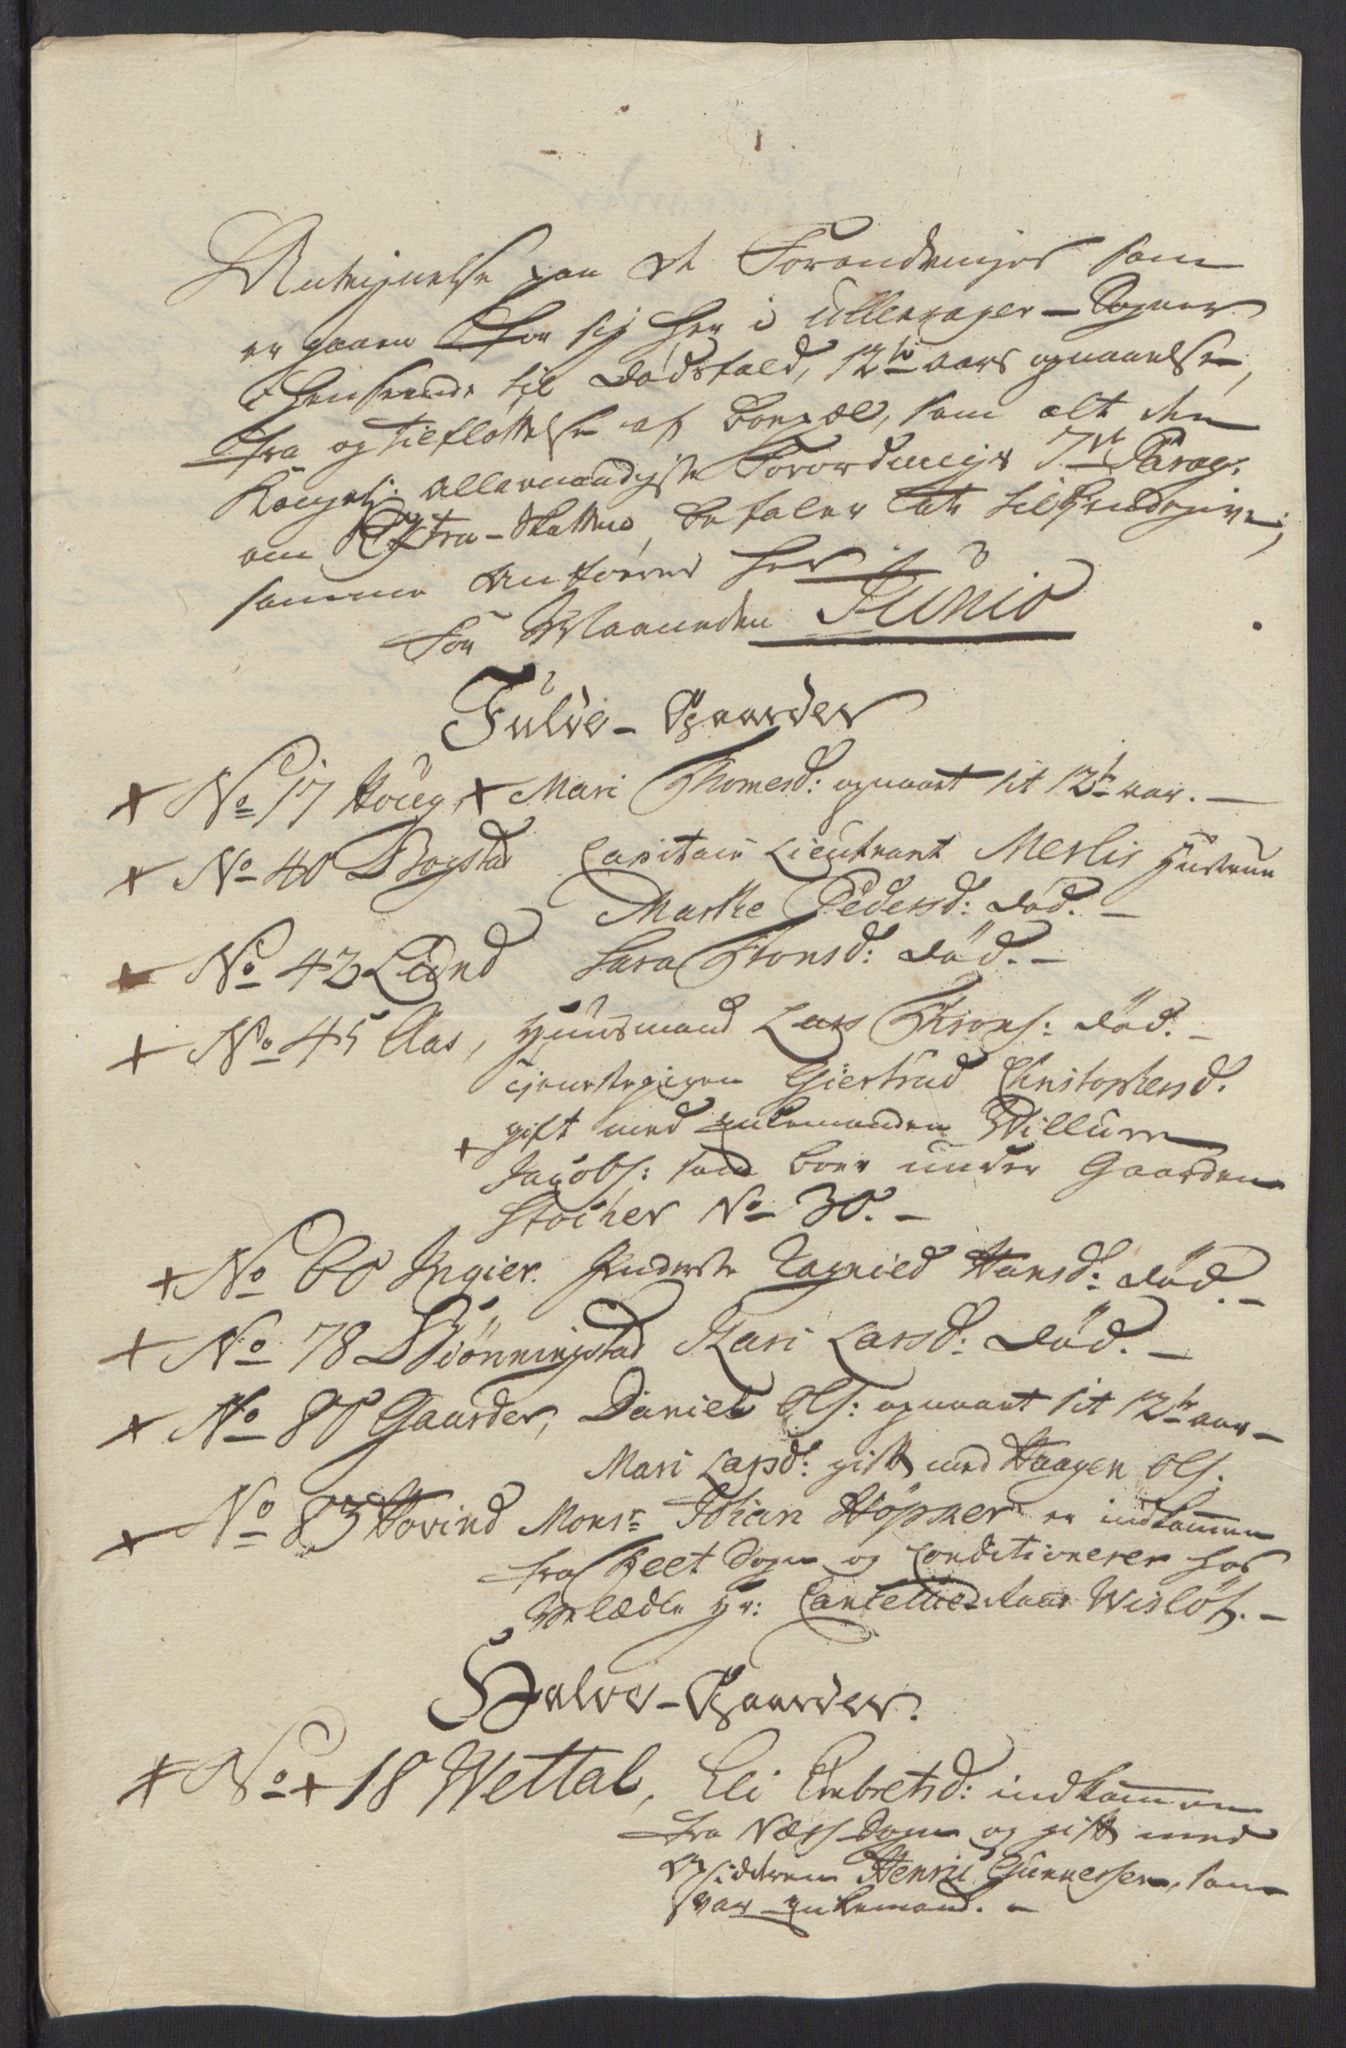 Antegnelse paa de Forandringer som
er gaaen for sig her i Ullensager-Sogn
i henseende til Dødsfald, 12te aars opnaaelse,
fra og tilfløttelse af boepæl, som alt den
Kongel: allernaadigste Forordnings 7de Parag:
om Extra-Skatten, befaler at tilkiendegive;
samme anføres her
for Maaneden Junio
Fulde-Gaarder
No 17 Houg, Mari Thomesd: opnaaet sit 12te aar. -
No 40 Bogstad Capitain Lieutnant Merlis Hustrue
Marthe Pedersd: død. -
No 42 Lund Sara Thonsd: død. -
No 45 Aas, Huusmand Lars Throns: død. -
tienistepigen Giertrud Christophersd:
gift med enkemanden Willum
Jacobs: som boer under Gaarden
Stocher No 30. -
No 60 Ingier. Inderste Ragnild Hansd: død. -
No 78 Biønningstad Kari Larsd: død. -
No 80 Gaarder, Daniel Ols: opnaaet sit 12te aar -
Mari Larsd: gift med Haagen Ols.
No 83 Hovind Monsr Johan Höpner er indkommen
fra Sogn og Conditionerer hos
Velædle Hr: Cancellie Raad Wisløf. -
Halve-Gaarder.
No 18 Wettal, Eli Embretsd: indkommen
fra Næss Sogn og gift med
Opsidderen Henric Gunnersen, som
var enkemand. -